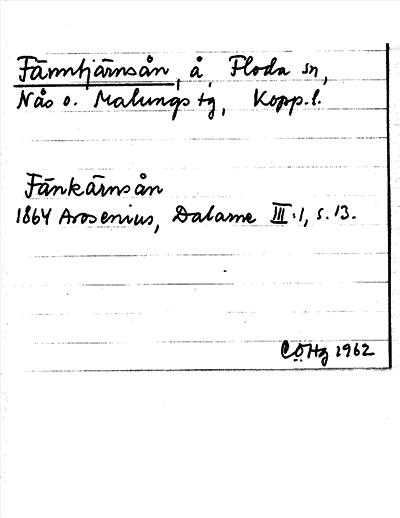 Fänntjärnsån, å, Floda sn,
Nås o. Malungs tg, Kopp. l.
Fänkärnsån
1864 Arosenius, Dalarne III:1, s. 13.
CÖHg 1962